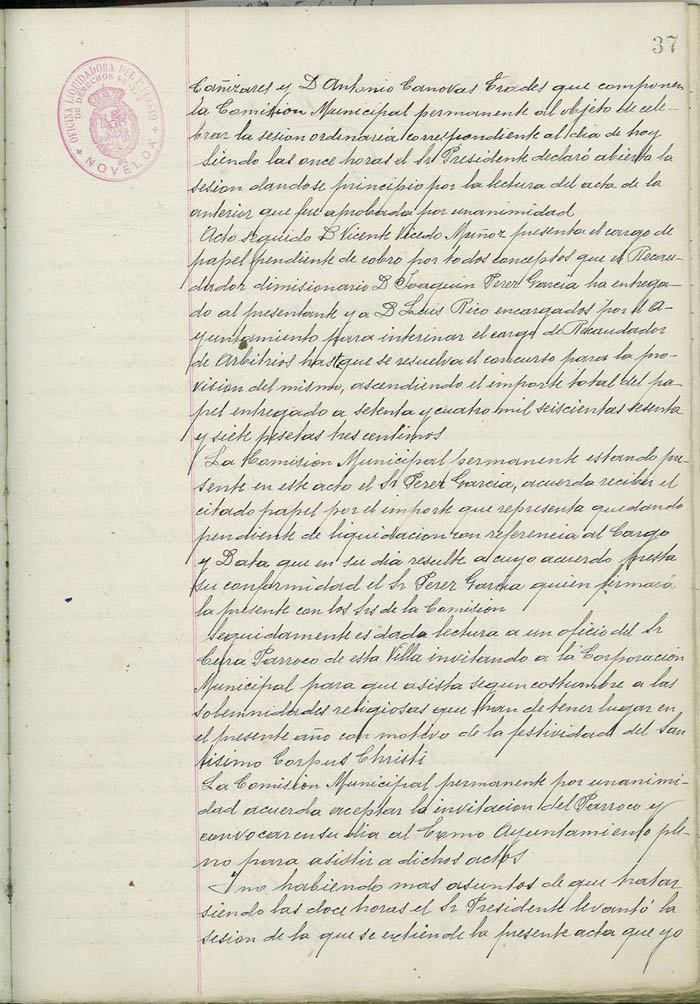 37
OFICINA LIQUIDADORA DEL IMPUESTO
DE DERECHOS REALES
NOVELDA
Cañizares y D Antonio Canovas Erades que componen
la Comision Municipal permanente al objeto de cele-
brar la sesion ordinaria correspondiente al dia de hoy
Siendo las once horas el Sr Presidente declaró abierta la
sesion dandose principio por la lectura del acta de la
anterior que fue aprobada por unanimidad
Acto seguido D Vicente Vicedo Muñoz presenta el cargo de
papel pendiente de cobro por todos conceptos que el Recau-
dador dimisionario D Joaquin Perez Garcia ha entrega-
do al presentante y a D Luis Rico encargados por el A-
yuntamiento para interinar el cargo de Recaudador
de Arbitrios hasta que se resuelva el concurso para la pro-
vision del mismo, ascendiendo el importe total del pa-
pel entregado a setenta y cuatro mil seiscientas sesenta
y siete pesetas tres centimos
La Comision Municipal permanente estando pre-
sente en este acto el Sr Perez Garcia, acuerda recibir el
citado papel por el importe que representa quedando
pendiente de liquidacion con referencia al Cargo
y Data que en su dia resulte a cuyo acuerdo presta
su conformidad el Sr Perez Garcia quien firmará
la presente con los Srs de la Comision
Seguidamente es dada lectura a un oficio del Sr
Cura Parroco de esta Villa invitando a la Corporacion
Municipal para que asista segun costumbre a las
solemnidades religiosas que han de tener lugar en
el presente año con motivo de la festividad del San
tisimo Corpus Christi
La Comision Municipal permanente por unanimi-
dad acuerda aceptar la invitacion del Parroco y
convocar en su dia al Excmo Ayuntamiento ple-
no para asistir a dichos actos
Y no habiendo mas asuntos de que tratar
siendo las doce horas el Sr Presidente levantó la
sesion de la que se extiende la presente acta que yo